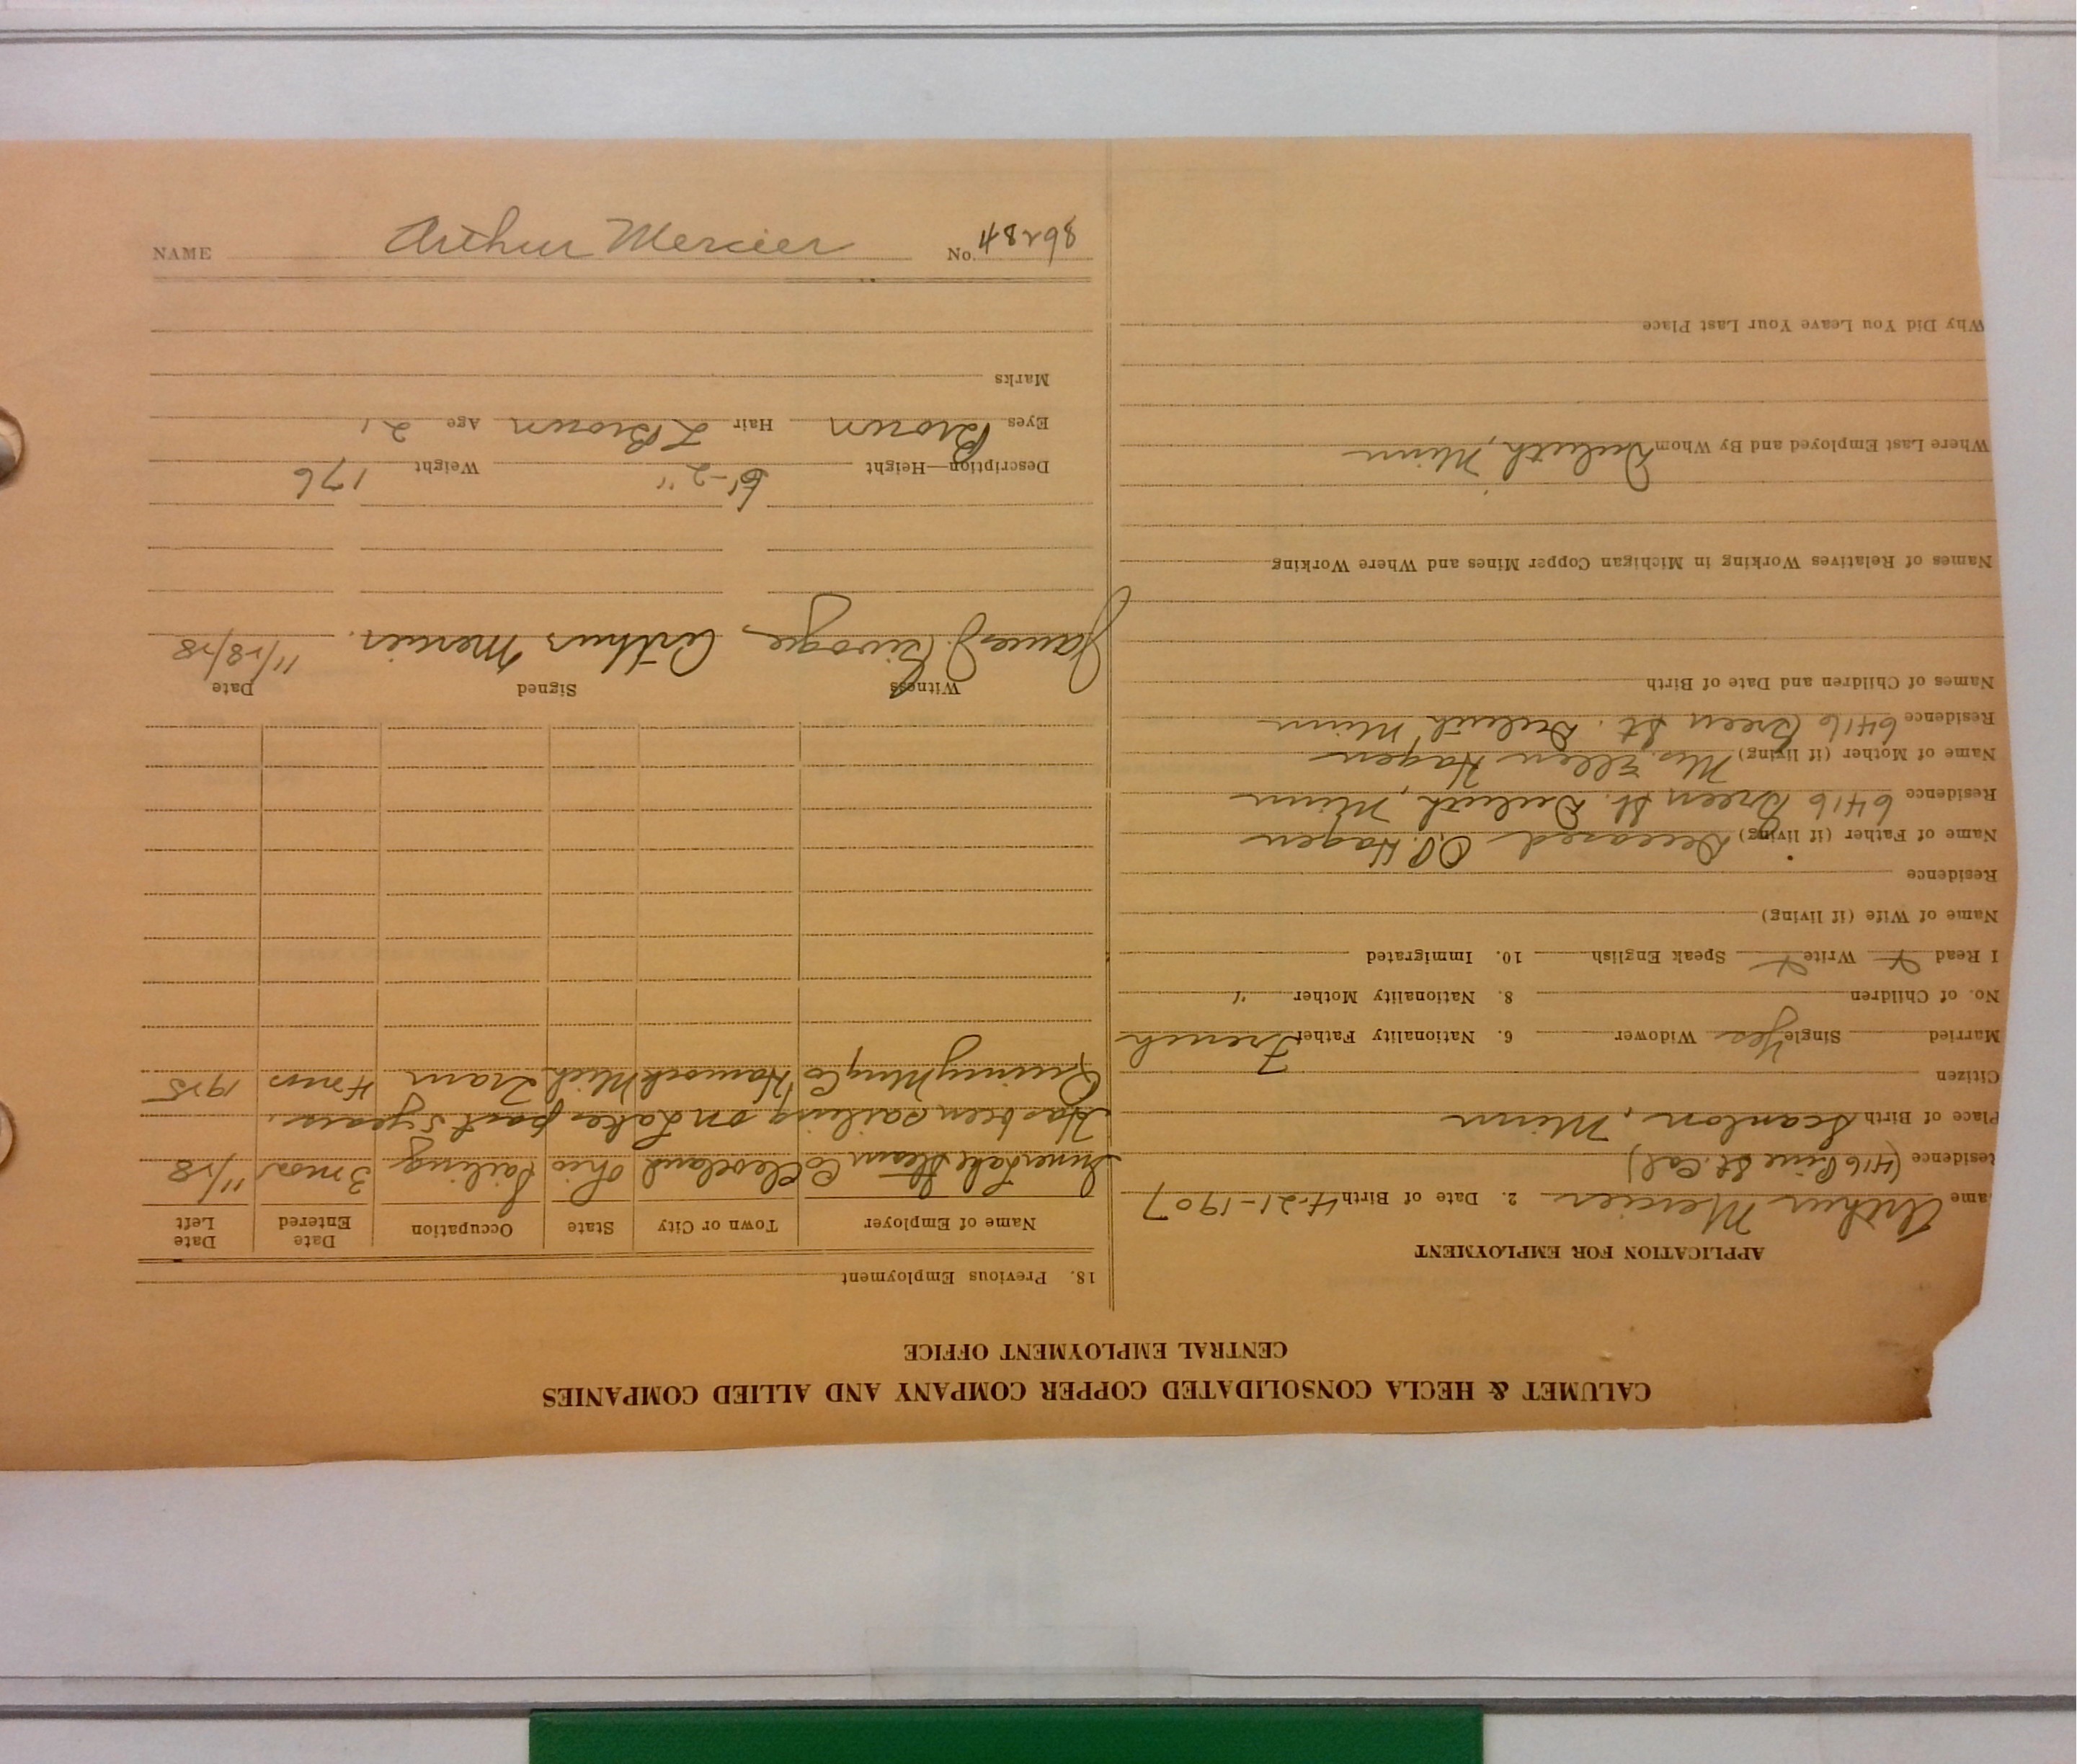 CALUMET & HECLA CONSOLIDATED COPPER COMPANY AND ALLIED COMPANIES
CENTRAL EMPLOYMENT OFFICE
APPLICATION FOR EMPLOYMENT
ame Arthur Mercier 2. Date of Birth 4-21-1907
Residence (416 Pine St. Cal)
Place of Birth Scanlon, Minn
Citizen
Married Single Yes Widower 6. Nationality Father French
No. of Children 8. Nationality Mother "
I Read Write Speak English 10. Immigrated
Name of Wife (if living)
Residence
Name of Father (if living) Deceased O.P. Hagen
Residence 6416 Green St. Duluth, Minn
Name of Mother (if living) Mrs. Ellen Hagen
Residence 6416 Green St. Duluth Minn
Names of Children and Date of Birth
Names of Relatives Working in Michigan Copper Mines and Where Working
Where Last Employed and By Whom Duluth, Minn
Why Did You Leave Your Last Place
18. Previous Employment
Name of Employer Town or City State Occupation Date Entered Date Left
Inner Lake Steam Co Cleveland Ohio Sailing 3 mos 11/28
Has been sailing on Lakes past 5 years.
Quincy Mng Co Hancock Mich Tram 4 mos 1925
Witness Signed Date
James J. Arthur Mercier. 11/28/28
Description—Height 6'-2" Weight 176
Eyes Brown Hair L Brown Age 21
Marks
NAME Arthur Mercier No. 48298